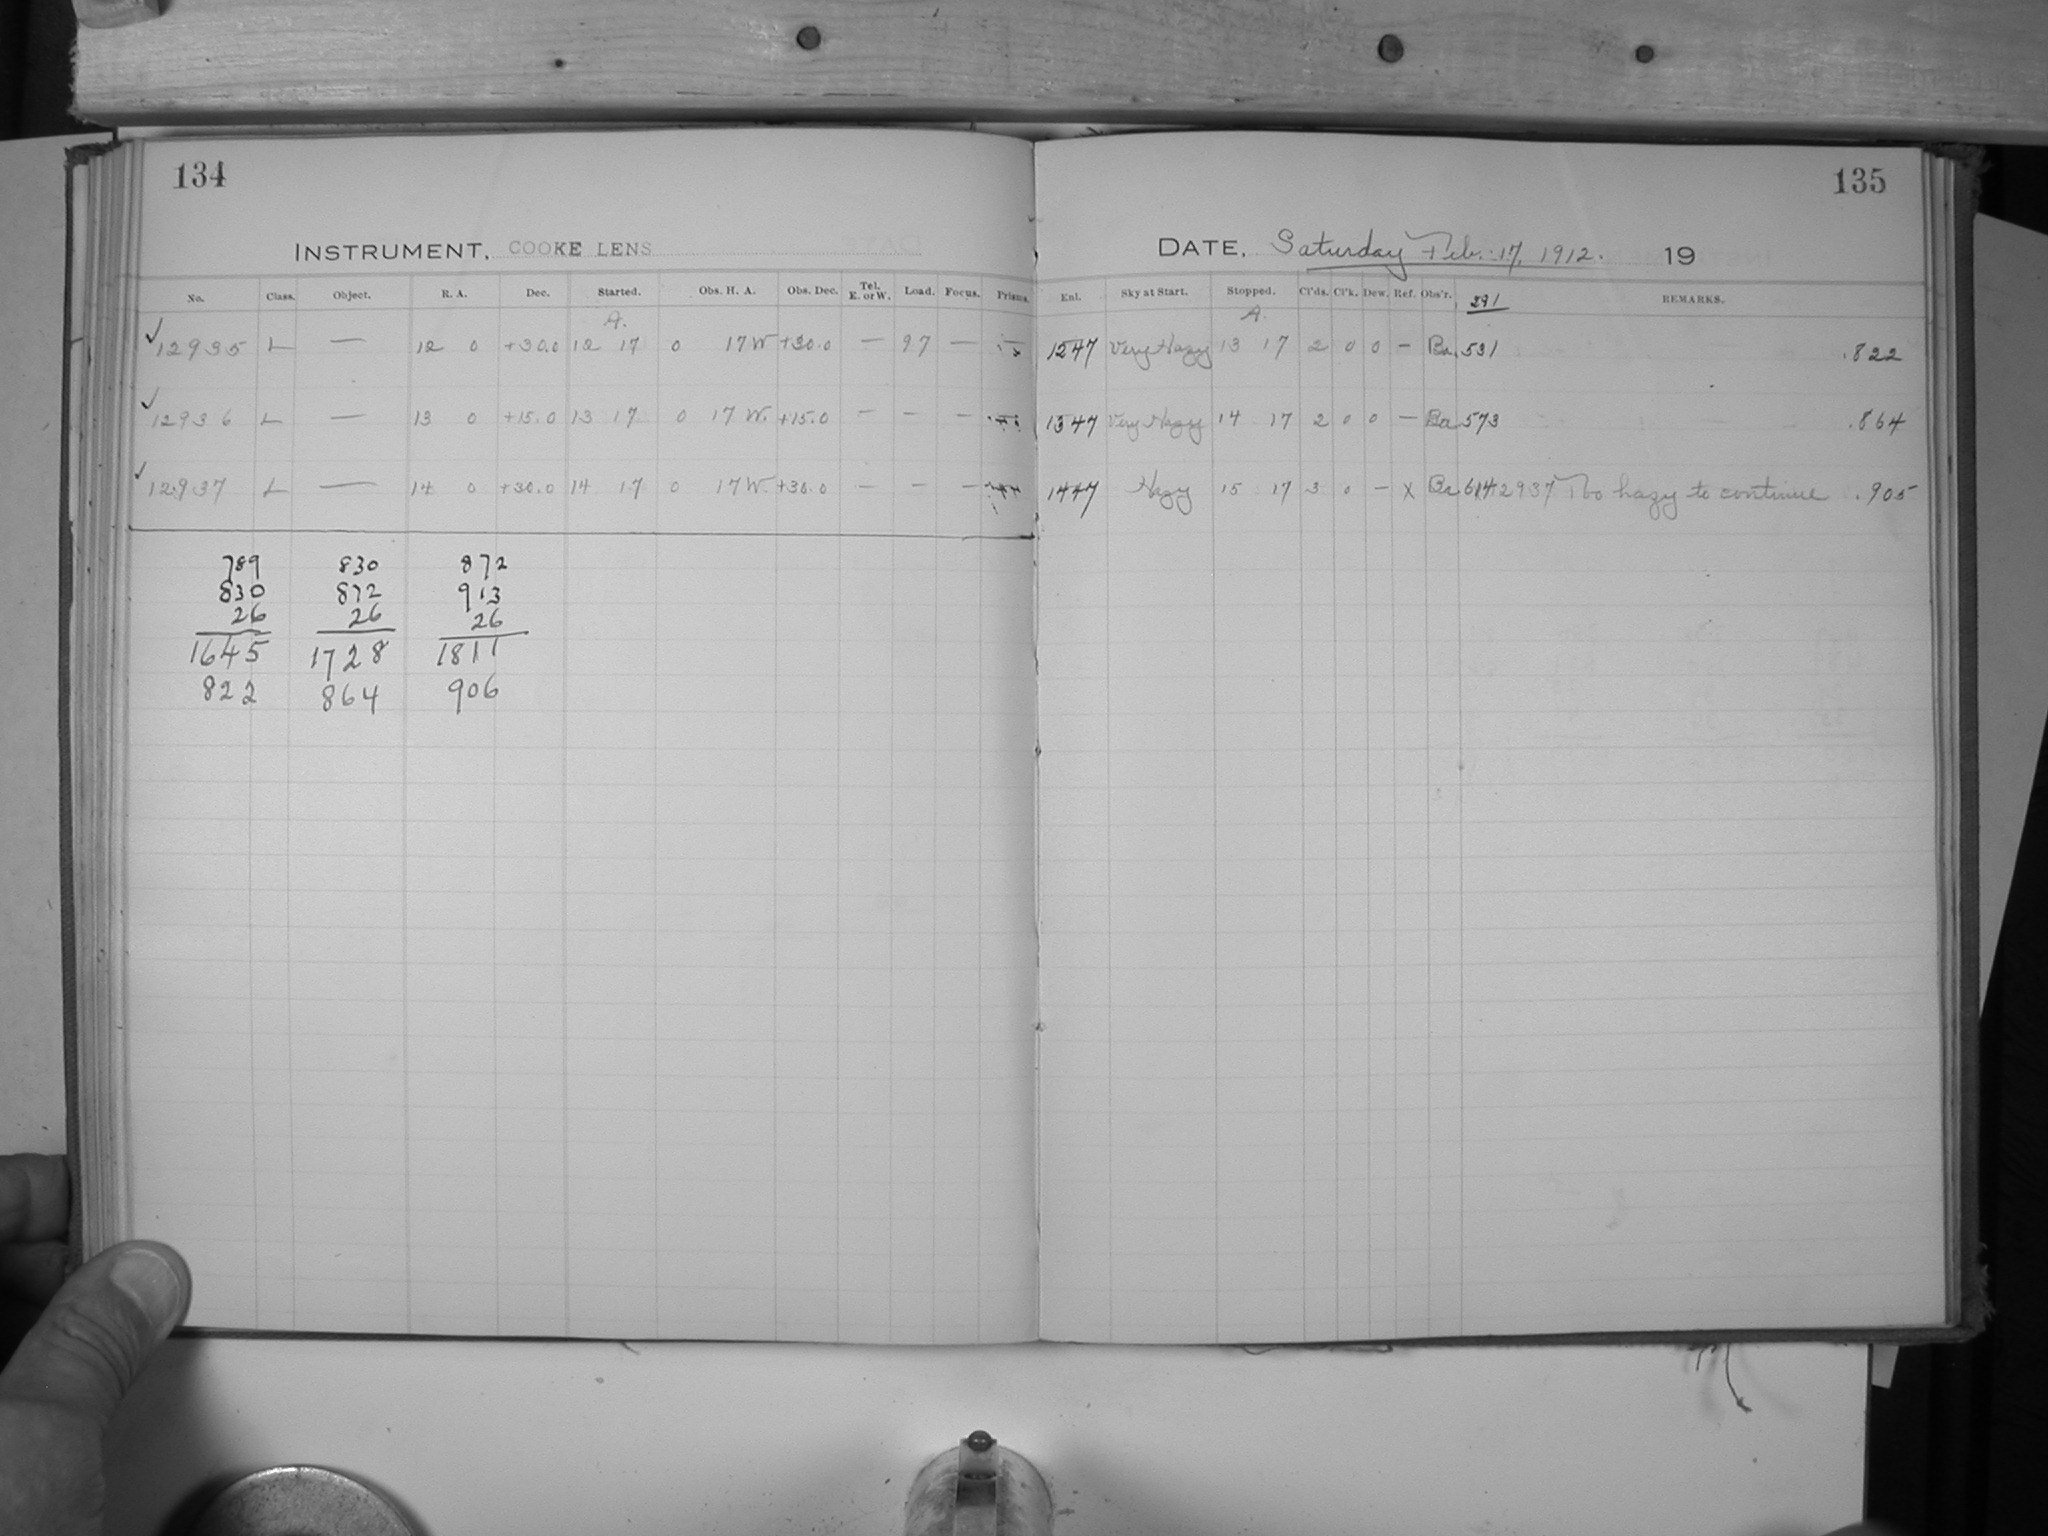 134
INSTRUMENT. COOKE LENS
No. Class. Object. R. A. Dec. Started. Obs. H. A. Obs. Dec. Tel. E. or W. Load. Focus. Prisms.
A.
✓ 12935 L — 12 0 +30.0 12 17 0 17 W +30.0 — 97 —
✓ 12936 L — 13 0 +15.0 13 17 0 17 W. +15.0 — — —
✓ 12937 L — 14 0 +30.0 14 17 0 17 W. +30.0 — — —
789 830 872
830 872 913
26 26 26
1645 1728 1811
822 864 906
135
DATE. Saturday Feb. 17, 1912. 19
Enl. Sky at Start. Stopped. Cl'ds. Cl'k. Dew. Ref. Obs'r. 291 REMARKS.
A.
1247 Very Hazy 13 17 2 0 0 — Ba. 531 .822
1347 Very Hazy 14 17 2 0 0 — Ba 573 .864
1447 Hazy 15 17 3 0 — X Ba. 12937 Too hazy to continue .905